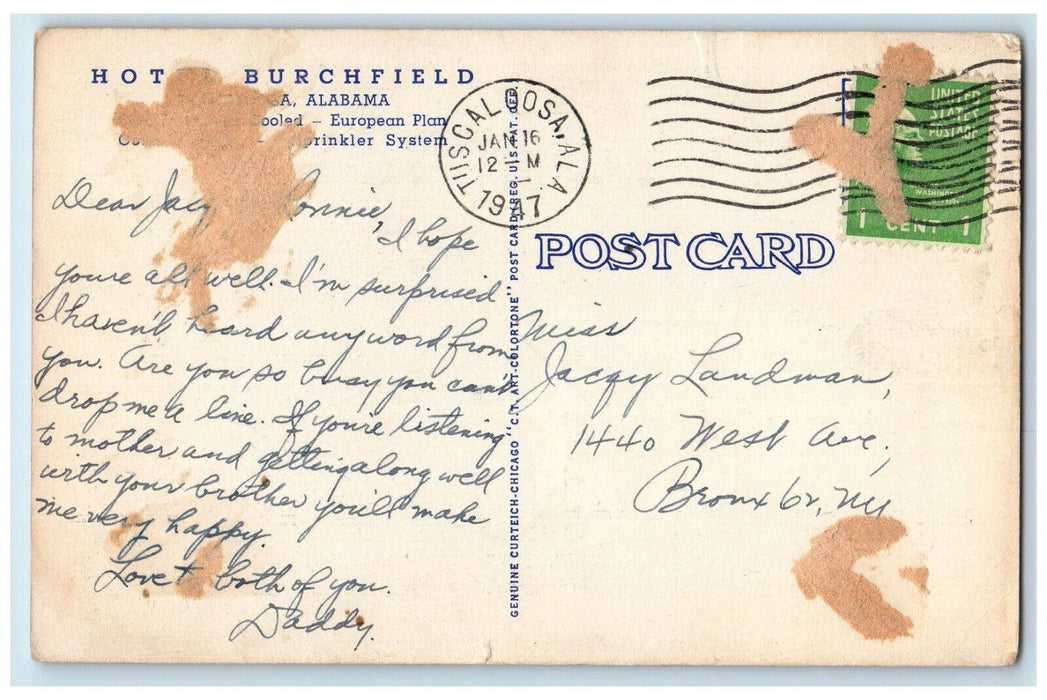 HOT BURCHFIELD
A, ALABAMA
ooled – European Plan
prinkler System
TUSCALOOSA, ALA.
JAN 16
12 – M
1947
UNITED
STATES
POSTAGE
WASHINGTON
1 CENT 1
POST CARD
GENUINE CURTEICH-CHICAGO "C.T. ART-COLORTONE" POST CARD (REG. U.S. PAT. OFF.)
Dear Jacq onnie,
I hope
you're all well. I'm surprised
I haven't heard any word from
you. Are you so busy you can't
drop me a line. If you're listening
to mother and getting along well
with your brother you'll make
me very happy.
Love + both of you.
Daddy.
Miss
Jacqy Landman,
1440 West Ave.,
Bronx 62, NY